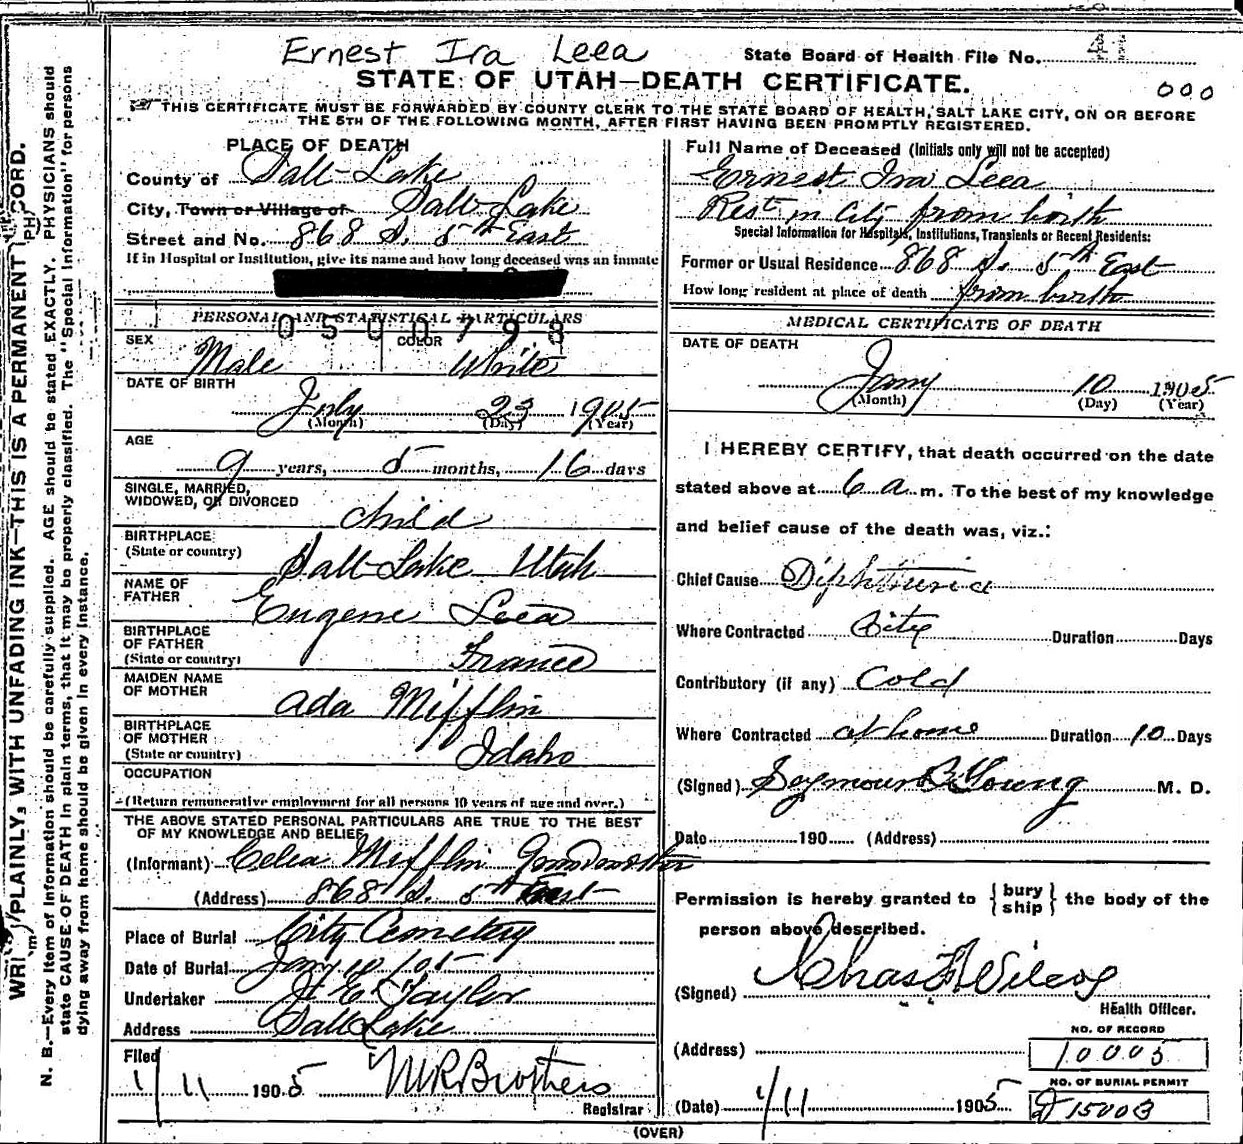 Ernest Ira Leea
State Board of Health File No. 41
STATE OF UTAH—DEATH CERTIFICATE.
000
THIS CERTIFICATE MUST BE FORWARDED BY COUNTY CLERK TO THE STATE BOARD OF HEALTH, SALT LAKE CITY, ON OR BEFORE
THE 5TH OF THE FOLLOWING MONTH, AFTER FIRST HAVING BEEN PROMPTLY REGISTERED.
PLACE OF DEATH
County of Salt Lake
City, Town or Village of Salt Lake
Street and No. 868 S. 5th East
If in Hospital or Institution, give its name and how long deceased was an inmate
PERSONAL AND STATISTICAL PARTICULARS
0500798
SEX Male COLOR White
DATE OF BIRTH
July 23 1905
(Month) (Day) (Year)
AGE
9 years, 5 months, 16 days
SINGLE, MARRIED,
WIDOWED, OR DIVORCED
child
BIRTHPLACE
(State or country) Salt Lake Utah
NAME OF
FATHER Eugene Leea
BIRTHPLACE
OF FATHER
(State or country) France
MAIDEN NAME
OF MOTHER Ada Mifflin
BIRTHPLACE
OF MOTHER
(State or country) Idaho
OCCUPATION
(Return remunerative employment for all persons 10 years of age and over.)
THE ABOVE STATED PERSONAL PARTICULARS ARE TRUE TO THE BEST
OF MY KNOWLEDGE AND BELIEF.
(Informant) Celia Mifflin Grandmother
(Address) 868 S. 5th East
Place of Burial City Cemetery
Date of Burial Jany 10 / 05
Undertaker J. E. Taylor
Address Salt Lake
Filed
1/11 1905 M R Brothers
Registrar
(OVER)
Full Name of Deceased (Initials only will not be accepted)
Ernest Ira Leea
Rest in City from birth
Special Information for Hospitals, Institutions, Transients or Recent Residents:
Former or Usual Residence 868 S. 5th East
How long resident at place of death from birth
MEDICAL CERTIFICATE OF DEATH
DATE OF DEATH
Jany 10 1905
(Month) (Day) (Year)
I HEREBY CERTIFY, that death occurred on the date
stated above at 6 a m. To the best of my knowledge
and belief cause of the death was, viz.:
Chief Cause Diphtheria
Where Contracted City Duration Days
Contributory (if any) Cold
Where Contracted at home Duration 10 Days
(Signed) Seymour B Young M. D.
Date 190 (Address)
Permission is hereby granted to { bury ship } the body of the
person above described.
(Signed) Chas F Wilcox
Health Officer.
NO. OF RECORD
(Address) 10005
NO. OF BURIAL PERMIT
(Date) 1/11 1905 D 15003
WRITE PLAINLY, WITH UNFADING INK—THIS IS A PERMANENT RECORD.
N. B.—Every item of information should be carefully supplied. AGE should be stated EXACTLY. PHYSICIANS should
state CAUSE OF DEATH in plain terms, that it may be properly classified. The "Special Information" for persons
dying away from home should be given in every instance.